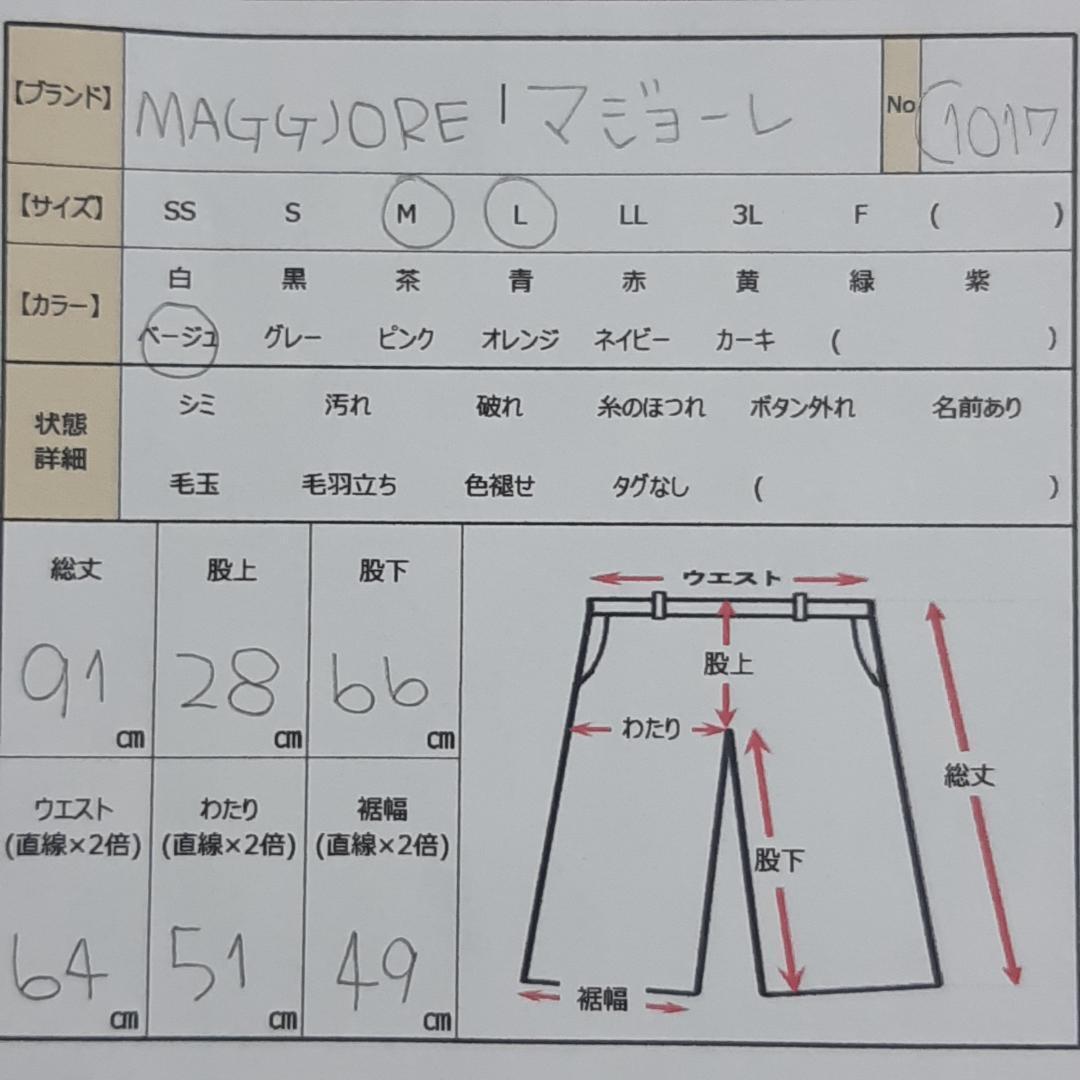 【ブランド】 MAGGIORE | マジョーレ No (1017
【サイズ】 SS S M L LL 3L F ( )
白 黒 茶 青 赤 黄 緑 紫
【カラー】
ベージュ グレー ピンク オレンジ ネイビー カーキ ( )
シミ 汚れ 破れ 糸のほつれ ボタン外れ 名前あり
状態
詳細
毛玉 毛羽立ち 色褪せ タグなし ( )
総丈 股上 股下
91 cm 28 cm 66 cm
ウエスト わたり 裾幅
(直線×2倍) (直線×2倍) (直線×2倍)
64 cm 51 cm 49 cm
ウエスト
股上
わたり
総丈
股下
裾幅